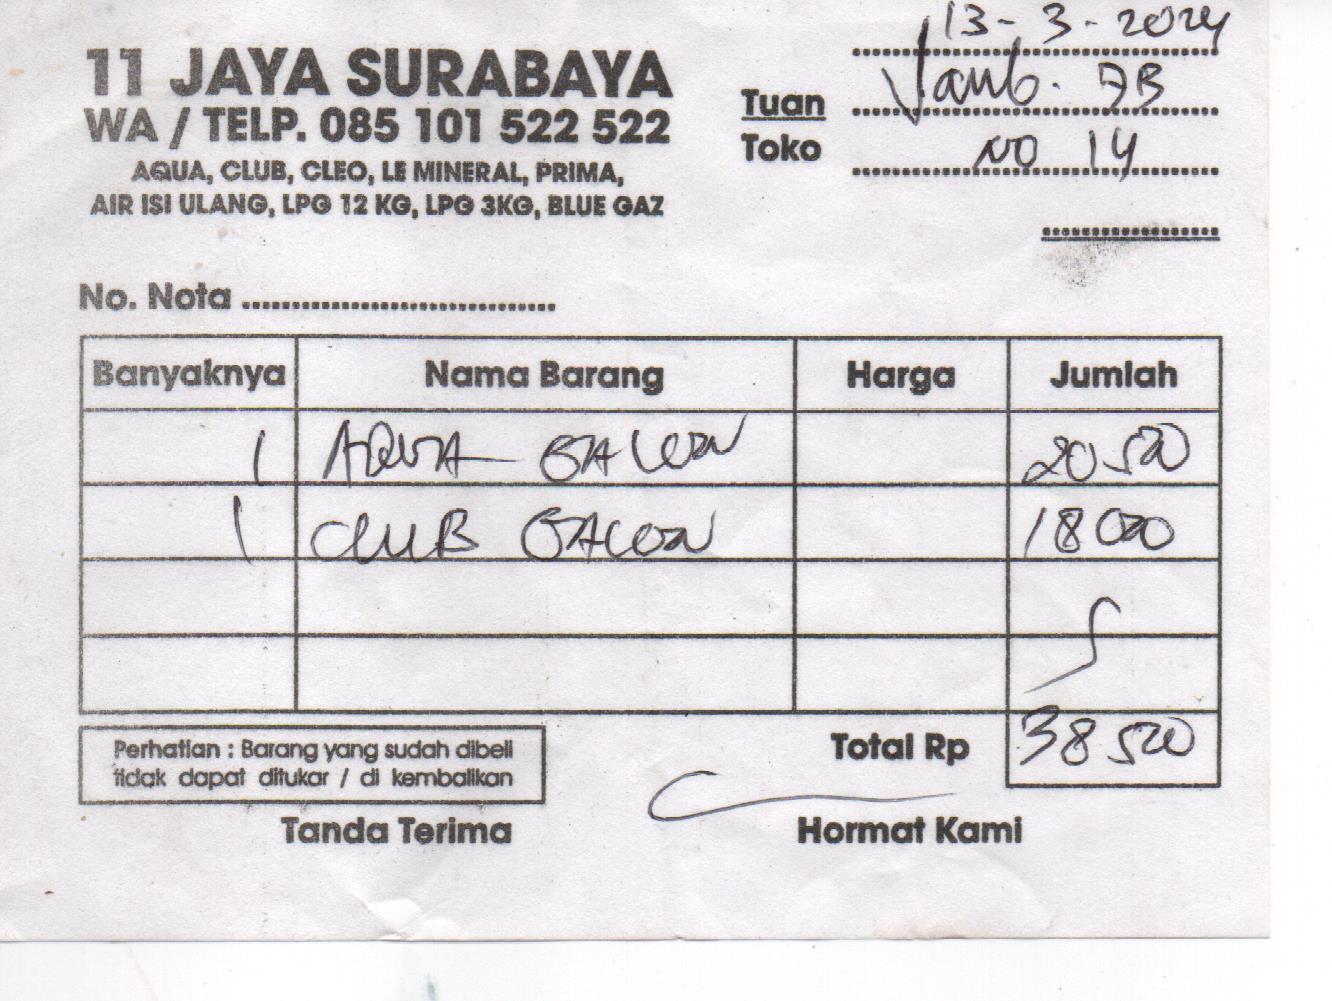 13-3-2024
11 JAYA SURABAYA
WA / TELP. 085 101 522 522
AQUA, CLUB, CLEO, LE MINERAL, PRIMA,
AIR ISI ULANG, LPG 12 KG, LPG 3KG, BLUE GAZ
Tuan Jamb. AB
Toko NO 14
No. Nota
Banyaknya Nama Barang Harga Jumlah
1 AQUA GALON 20 500
1 CLUB GALON 18 000
Total Rp 38 500
Perhatian : Barang yang sudah dibeli
tidak dapat ditukar / di kembalikan
Tanda Terima Hormat Kami